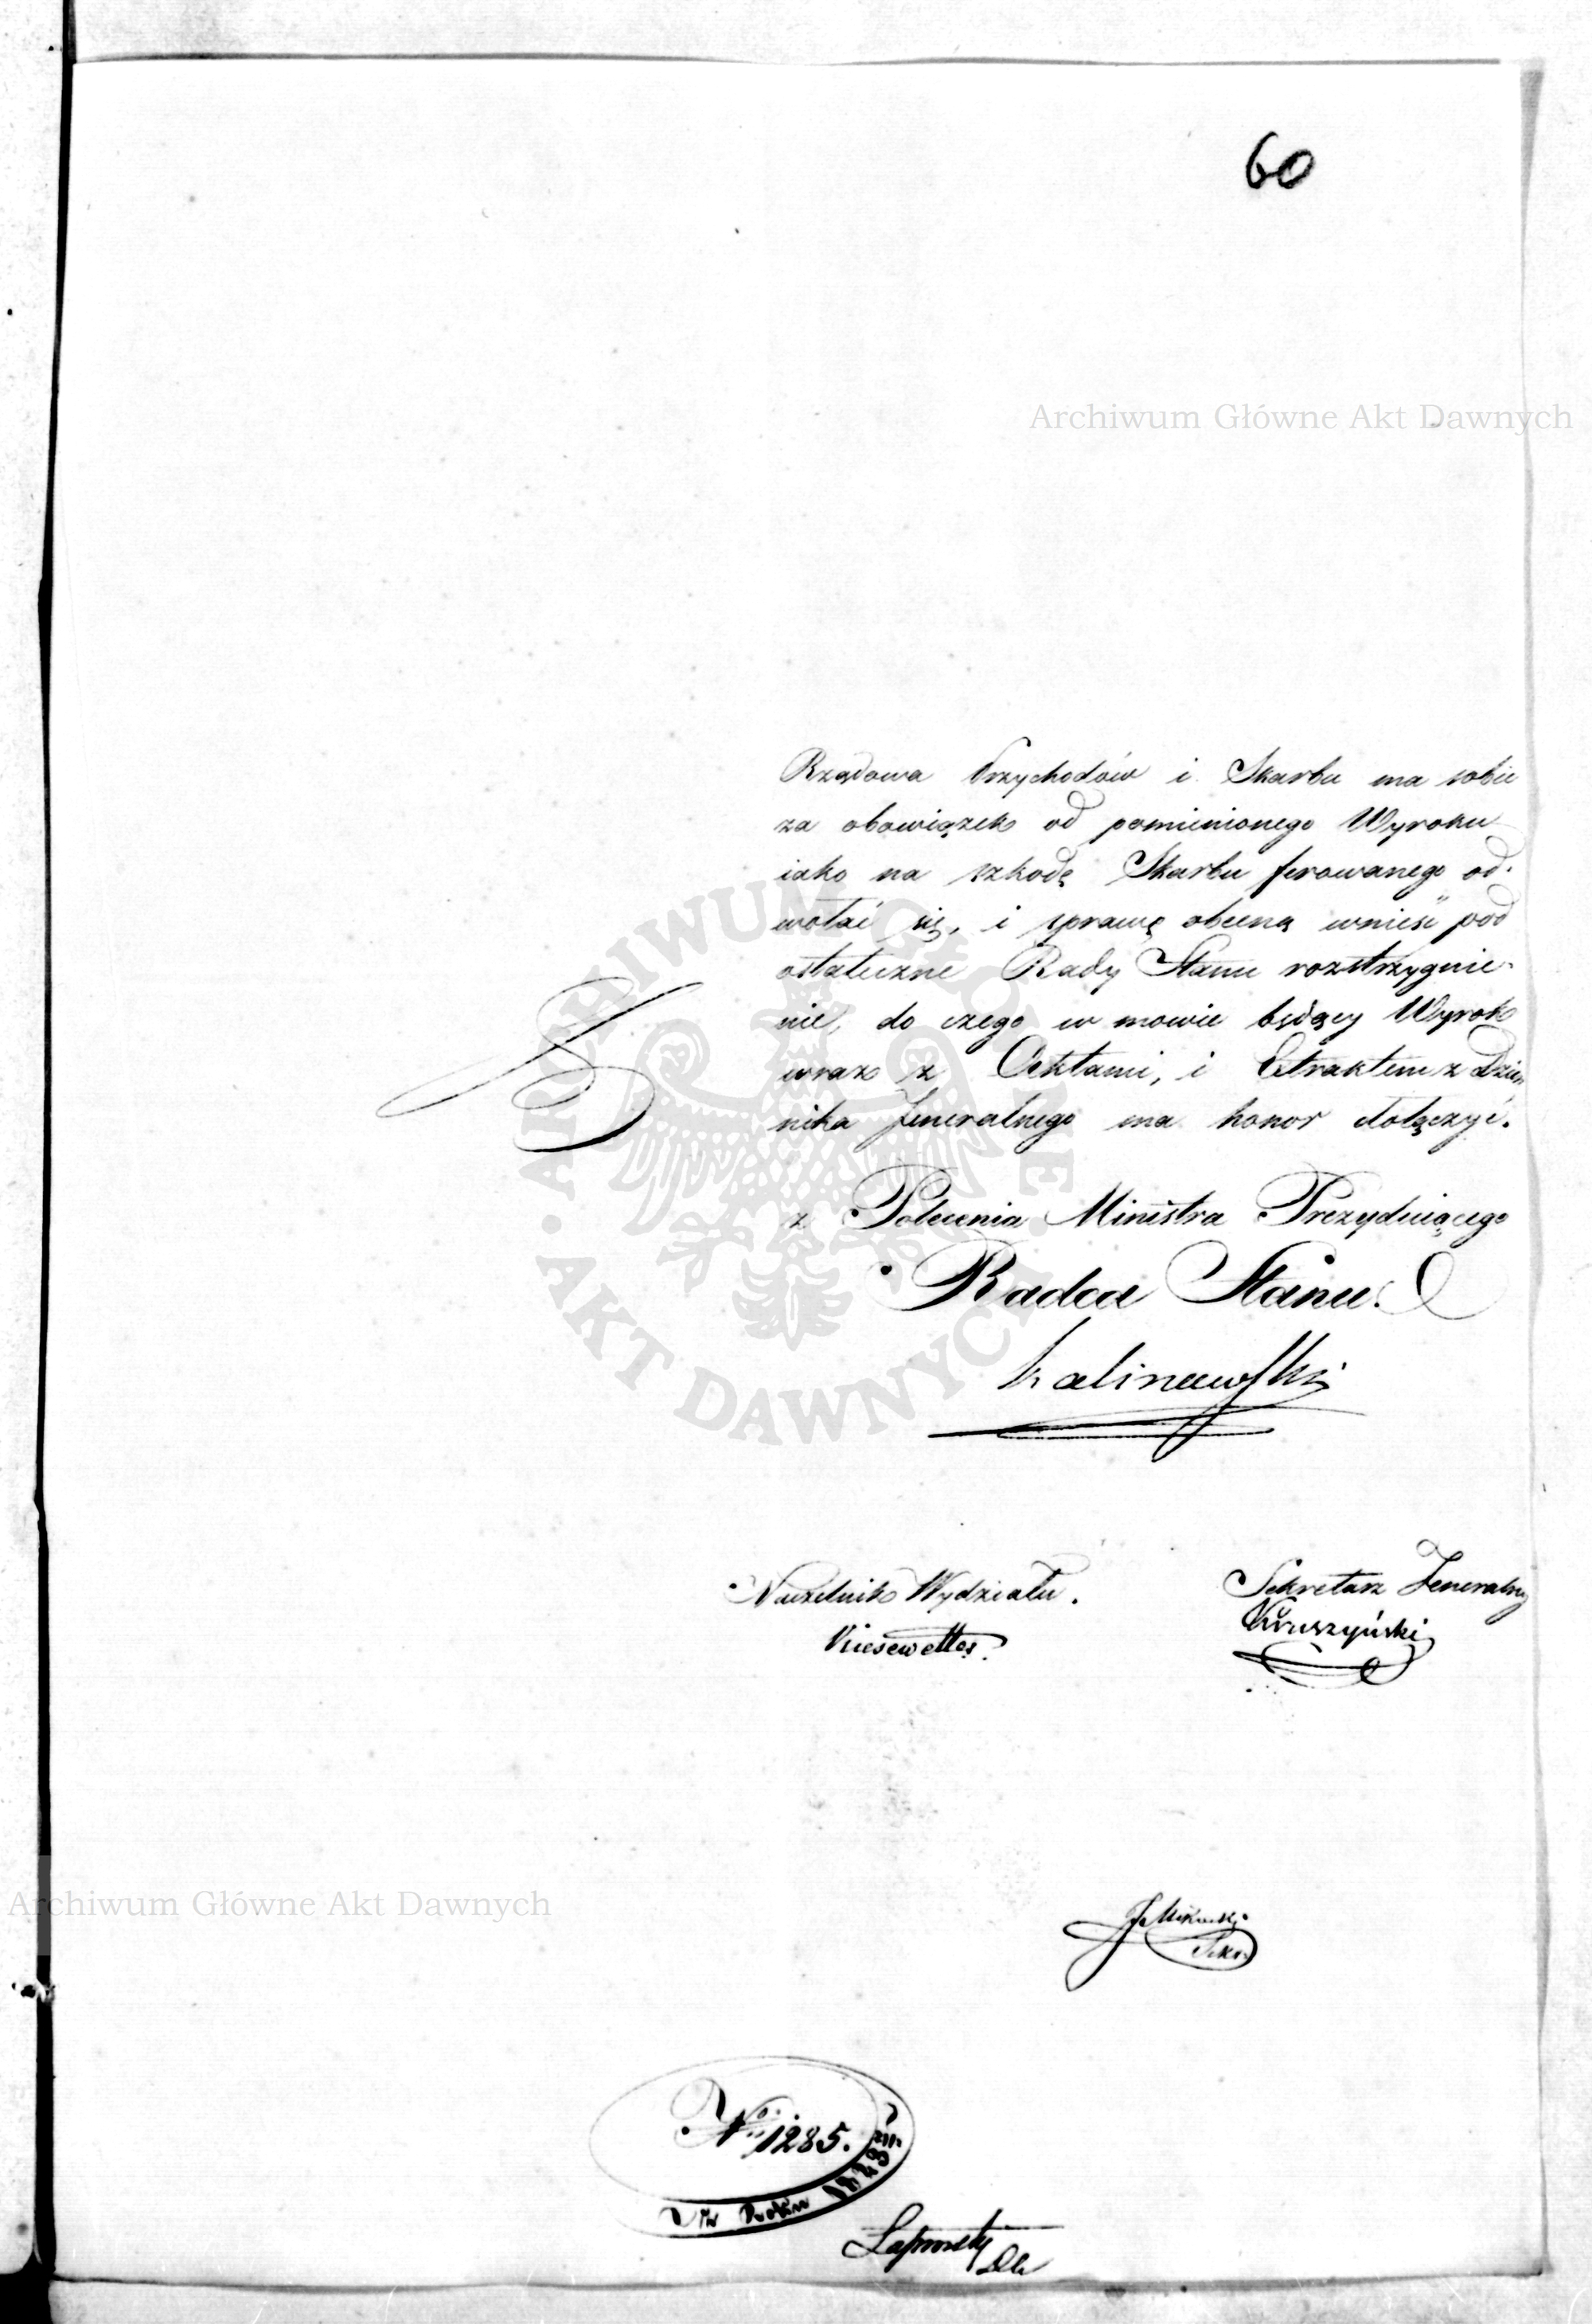 60
Archiwum Główne Akt Dawnych
Rządowa Przychodów i Skarbu ma sobie
za obowiązek od pomienionego Wyroku
iako na szkodę Skarbu ferowanego od-
wołać się, i sprawę obecną wnieść pod
ostateczne Rady Stanu rozstrzygnie-
nie, do czego w mowie będący Wyrok
wraz z Aktami, i Extraktem z Dzien
nika Jeneralnego ma honor dołączyć.
z Polecenia Ministra Prezyduiącego
Radca Stanu.
Kalinowski
Naczelnik Wydziału.
Sekretarz Jeneralny
Kiesewetter.
Kruszyński
Archiwum Główne Akt Dawnych
Sekr.
No 1285.
1823
ARCHIWUM GŁÓWNE
AKT DAWNYCH